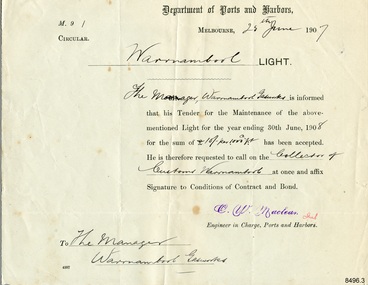 Department of Ports and Harbors,
M. 9 /
MELBOURNE, 25th June 1907
CIRCULAR.
Warrnambool LIGHT.
The Manager, Warrnambool Gasworks is informed
that his Tender for the Maintenance of the above-
mentioned Light for the year ending 30th June, 1908
for the sum of per 1000 ft has been accepted.
He is therefore requested to call on the Collector of
Customs Warrnambool at once and affix
Signature to Conditions of Contract and Bond.
C. W. Maclean
Engineer in Charge, Ports and Harbors.
To The Manager
Warrnambool Gasworks
8496.3